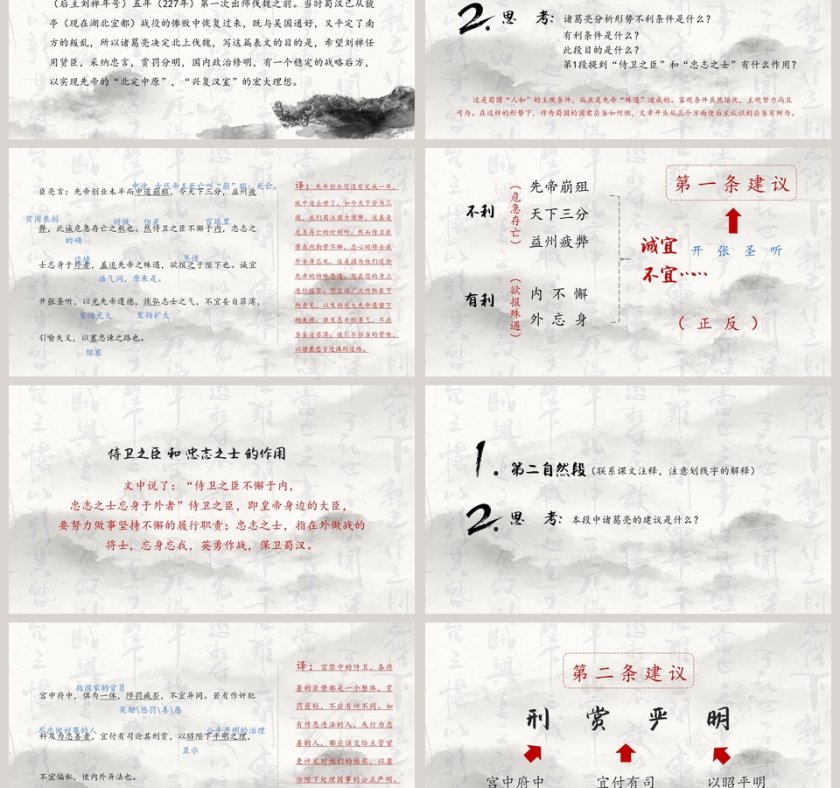 （后主刘禅年号）五年（227年）第一次出师伐魏之前。当时蜀汉已从猇
亭（现在湖北宜都）战役的惨败中恢复过来，既与吴国通好，又平定了南
方的叛乱，所以诸葛亮决定北上伐魏，写这篇表文的目的是，希望刘禅任
用贤臣，采纳忠言，赏罚分明，国内政治修明，有一个稳定的战略后方，
以实现先帝的“北定中原”，“兴复汉室”的宏大理想。
2.思 考：诸葛亮分析形势不利条件是什么？
有利条件是什么？
此段目的是什么？
第1段提到“侍卫之臣”和“忠志之士”有什么作用？
这是蜀国“人和”的主观条件，而且是先帝“殊遇”造成的。客观条件虽然堪忧，主观努力尚且
可为。在这样的形势下，作为蜀国的国君应当如何做，文章开头从三个方面使后主认识到应当有所为。
中途
古代帝王死亡叫“崩”
殂：死亡。
臣亮言：先帝创业未半而中道崩殂，今天下三分，益州疲
贫困衰弱
时候
但是
宫廷里
弊，此诚危急存亡之秋也。然侍卫之臣不懈于内，忠志之
的确
士忘身于外者，盖追先帝之殊遇，欲报之于陛下也。诚宜
语气词，原来是。
开张圣听，以光先帝遗德，恢弘志士之气，不宜妄自菲薄，
发扬光大
发扬扩大
引喻失义，以塞忠谏之路也。
阻塞
译：先帝创业还没有完成一半，
就中途去世了。如今天下分为三
国，我们蜀汉国力困弊，这真是
危急存亡的时刻啊。然而侍卫臣
僚在内勤劳不懈，忠心的将士在
外舍身忘死，这是因为他们追念
先帝的特殊恩遇，想在您的身上
进行报答。您应该广泛听取群臣
的意见，以发扬光大先帝遗留下
的美德，激发志士的勇气，不应
当妄自菲薄，援引不恰当的譬喻，
以堵塞忠言进谏的道路。
第一条建议
不利
（危急存亡）
先帝崩殂
天下三分
益州疲弊
有利
（欲报殊遇）
内不懈
外忘身
诚宜 开张圣听
不宜……
（正反）
侍卫之臣 和 忠志之士 的作用
文中说了：“侍卫之臣不懈于内，
忠志之士忘身于外者”侍卫之臣，即皇帝身边的大臣，
要努力做事坚持不懈的履行职责；忠志之士，指在外做战的
将士，忘身忘我，英勇作战，保卫蜀汉。
1.第二自然段（联系课文注释，注意划线字的解释）
2.思 考：本段中诸葛亮的建议是什么？
指国家的官员
宫中府中，俱为一体，陟罚臧否，不宜异同。若有作奸犯
奖励\惩罚\善\恶
尽忠做好事的人
公平严明的治理
科及为忠善者，宜付有司论其刑赏，以昭陛下平明之理，
显示
不宜偏私，使内外异法也。
译：宫禁中的侍卫、各府
署的臣僚都是一个整体，赏
罚褒贬，不应有所不同。如
有作恶违法的人，或行为忠
善的人，都应该交给主管官
吏评定对他们的惩奖，以显
示陛下处理国事的公正严明，
第二条建议
刑赏严明
宫中府中
宜付有司
以昭平明